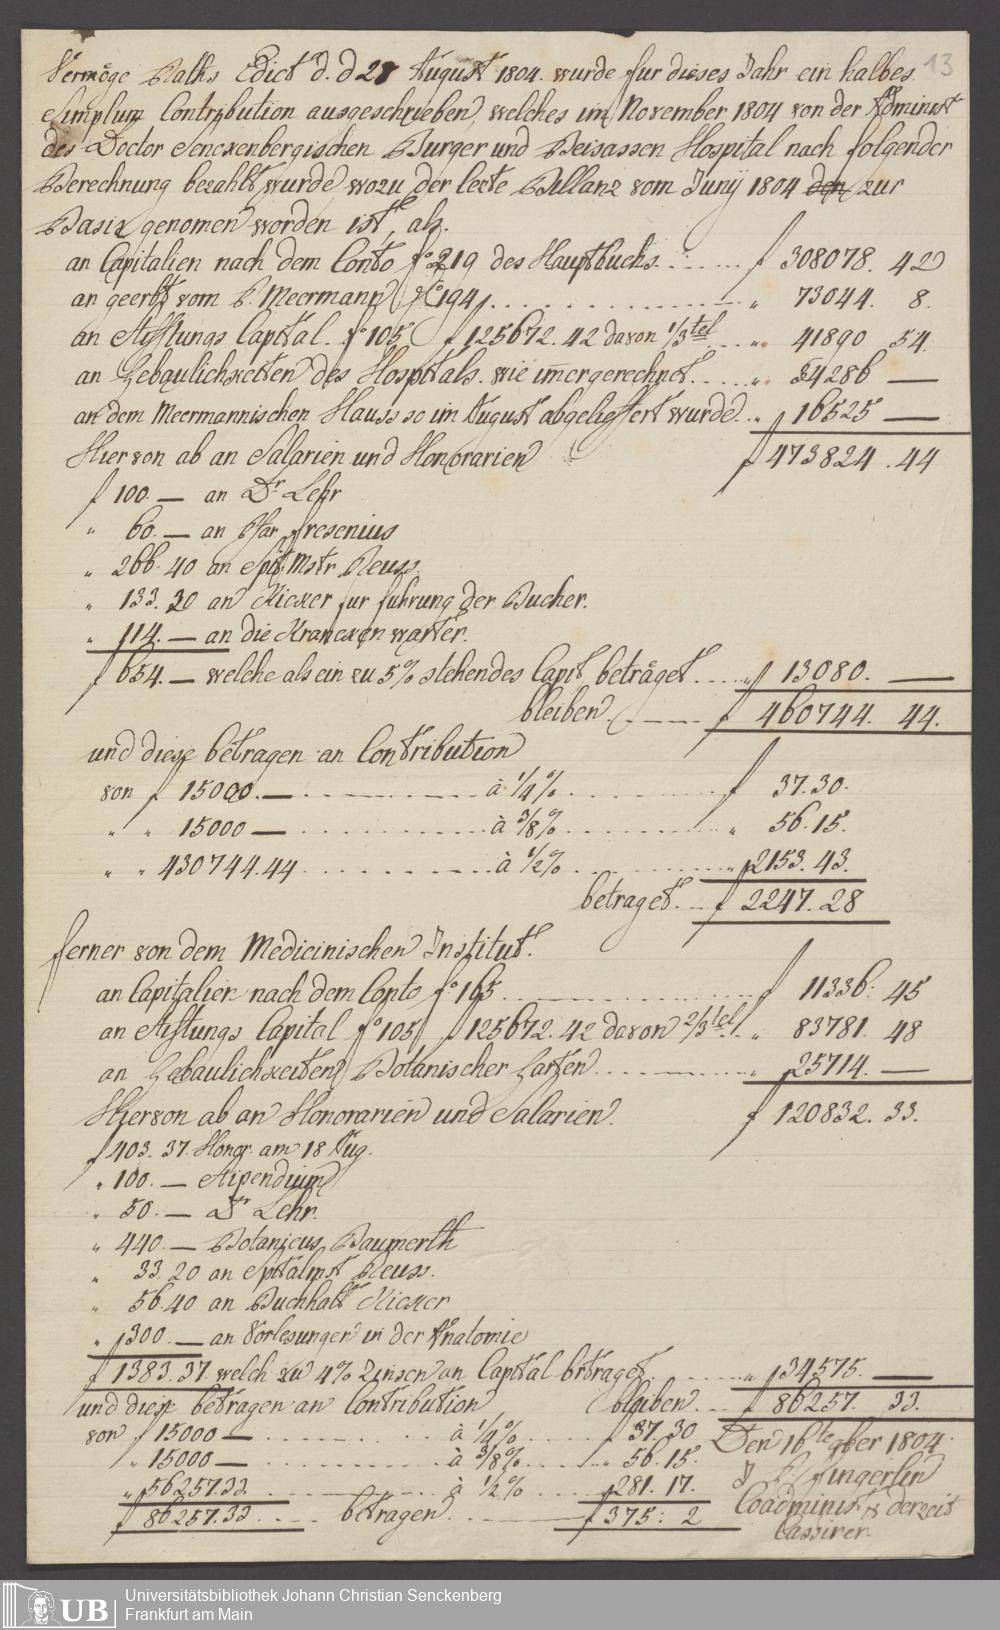 13
Vermöge Raths Edict d. d 28 August 1804. wurde fur dieses Jahr ein halbes
Simplum Contribution ausgeschrieben, welches im November 1804 von der Administ
des Doctor Senckenbergischen Burger und Beisassen Hospital nach folgender
Berechnung bezahlt wurde wozu der lezte Billanz vom Junÿ 1804 den zur
Basis genomen worden ist, als.
an Capitalien nach dem Conto fo 219 des Hauptbuchs. f 308078. 42
an geerbt vom B. Meermann fo 194 " 73044. 8.
an Stiftungs Capital. fo 105 f 125672. 42 davon 1/3tel " 41890 54.
an Gebaulichkeiten des Hospitals. wie imer gerechnet " 34286 —
an dem Meermannischen Hauss so im August abgelieffert wurde. " 16525 —
Hiervon ab an Salarien und Honorarien f 473824. 44
f 100. — an Dr Lehr
" 60. — an Pfar fresenius
" 266. 40 an Spit Mstr Reuss.
" 133. 20 an Kicker fur fuhrung der Bucher.
" 114. — an die Krancken warter.
f 654. — welche als ein zu 5% stehendes Capit. beträget " 13080. —
bleiben f 460744. 44.
und diese betragen an Contribution
von f 15000. — à 1/4% f 37. 30.
" " 15000 — à 3/8% " 56. 15.
" " 430744. 44 à 1/2% " 2153. 43.
betraget. f 2247. 28
ferner von dem Medicinischen Institut.
an Capitalien nach dem Conto fo 165 f 11336. 45
an Stiftungs Capital fo 105 f 125672. 42 davon 2/3tel. " 83781. 48
an Gebaulichkeiten Botanischer Garten " 25714. —
Hiervon ab an Honorarien und Salarien. f 120832. 33.
f 403. 37. Honor. am 18 Aug.
" 100. — Stipendium
" 50. — Dr Lehr.
" 440. — Botanicus Baumerth
" 33. 20 an Spitalmst Reuss.
" 56. 40 an Buchhalt Kicker
" 300. — an Vorlesungen in der Anatomie
f 1383. 37. welch zu 4% Zinsen an Capital betraget " 34575. —
und diese betragen an Contribution bleiben f 86257. 33.
von f 15000 — à 1/4% f 37. 30
" 15000 — à 3/8% " 56. 15.
" 56257. 33 à 1/2% " 281. 17.
f 86257. 33 betragen f 375: 2
Den 16te 9ber 1804.
J. C. Fingerlin
Coadminist & derzeit
Cassirer.
UB
Universitätsbibliothek Johann Christian Senckenberg
Frankfurt am Main